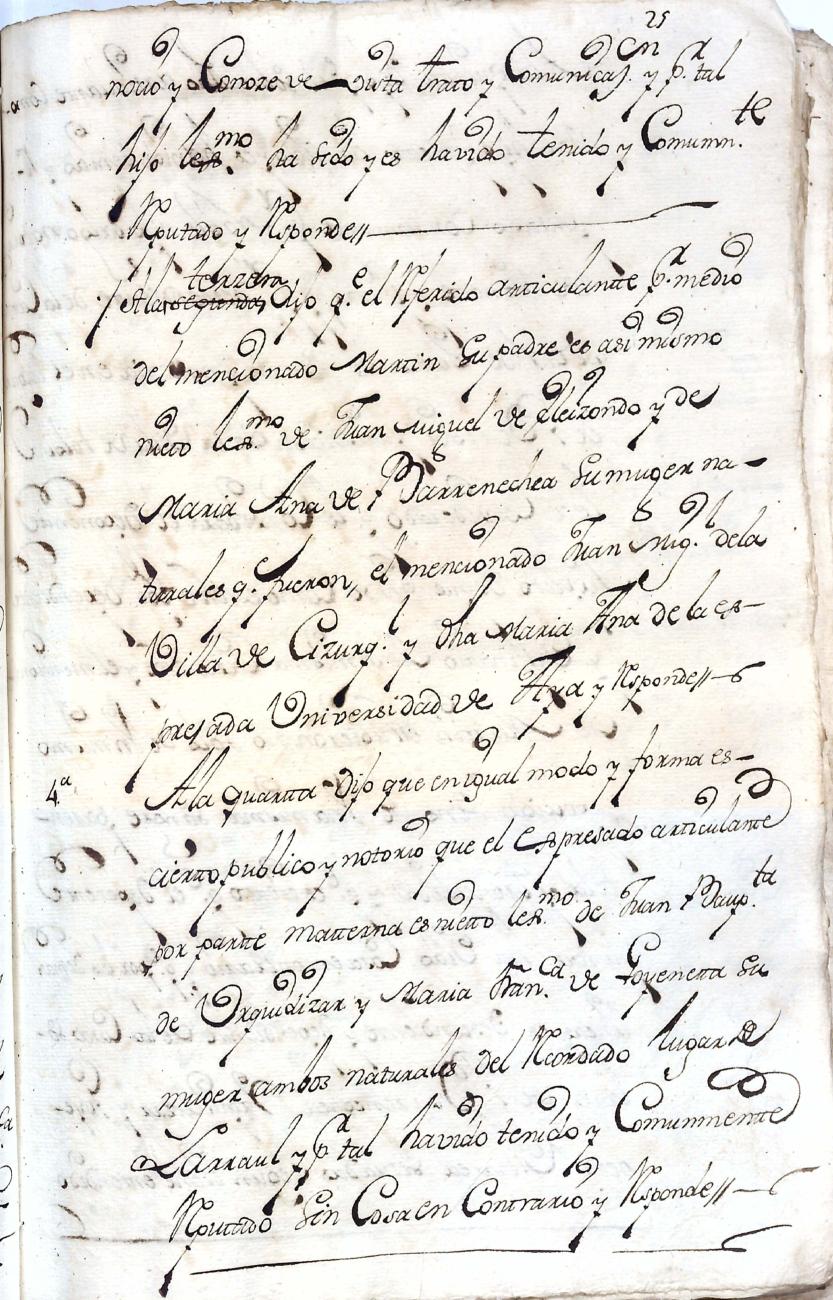 25
nocio y Conoze de vista trato y Comunicas.on y p.r tal
hijo lex.mo ha sido y es havido tenido y Comunm.te
Rputado y Rsponde//
A la terzera segunda, Dijo q.e el Rferido articulantte p.r medio
del mencionado Martin su padre es asi mismo
nieto lex.mo de Juan Miguel de Eleizondo y de
Maria Ana de Barrenechea su muger na-
turales q.e fueron, el mencionado Juan Mig.l de la
Villa de Cizurq.l y dha Maria Ana de la es-
presada Universidad de Aya y Rsponde//
4.a A la quartta Dijo que en igual modo y forma es-
cierto publico y notorio que el espresado articulantte
por partte matterna es nietto lex.mo de Juan Baup.ta
de Urquidizar y Maria Fran.ca de Goyenetta su
muger ambos naturales del Rcordado lugar de
Larraul y p.r tal havido tenido y Comunmentte
Rputado sin Cosa en Contrario y Rsponde//